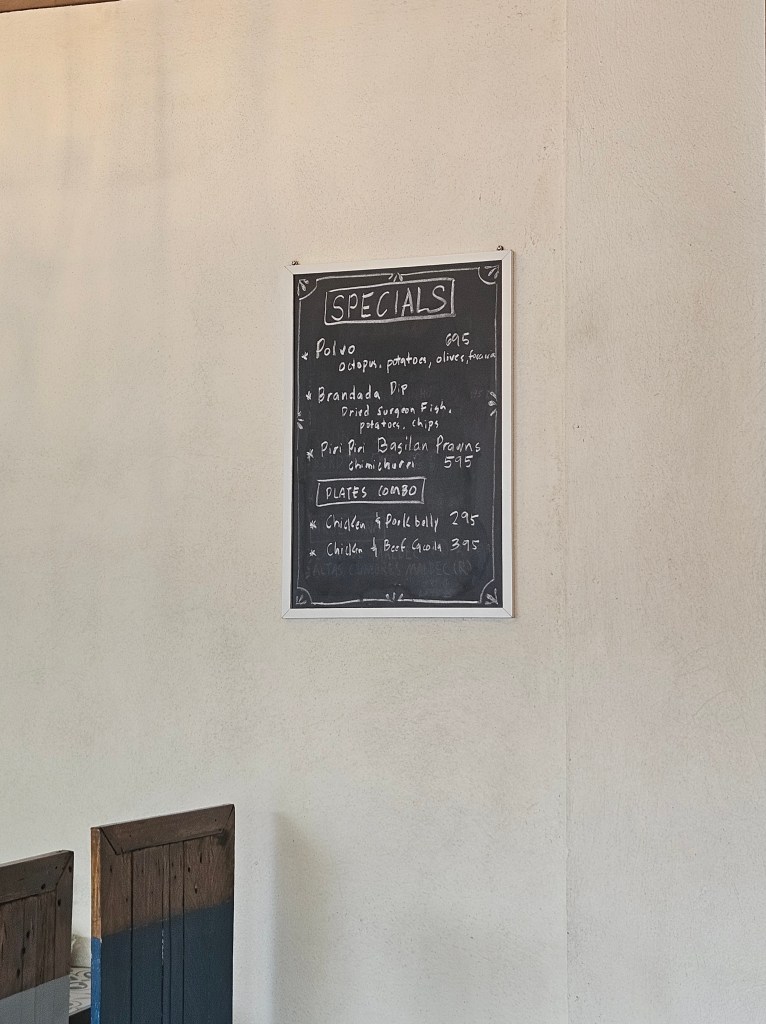 SPECIALS
* Polvo 695
octopus, potatoes, olives, focaccia
* Brandada Dip
Dried Surgeon Fish,
potatoes, chips
* Piri Piri Basilan Prawns
chimichurri 595
PLATES COMBO
* Chicken & Pork belly 295
* Chicken & Beef 395